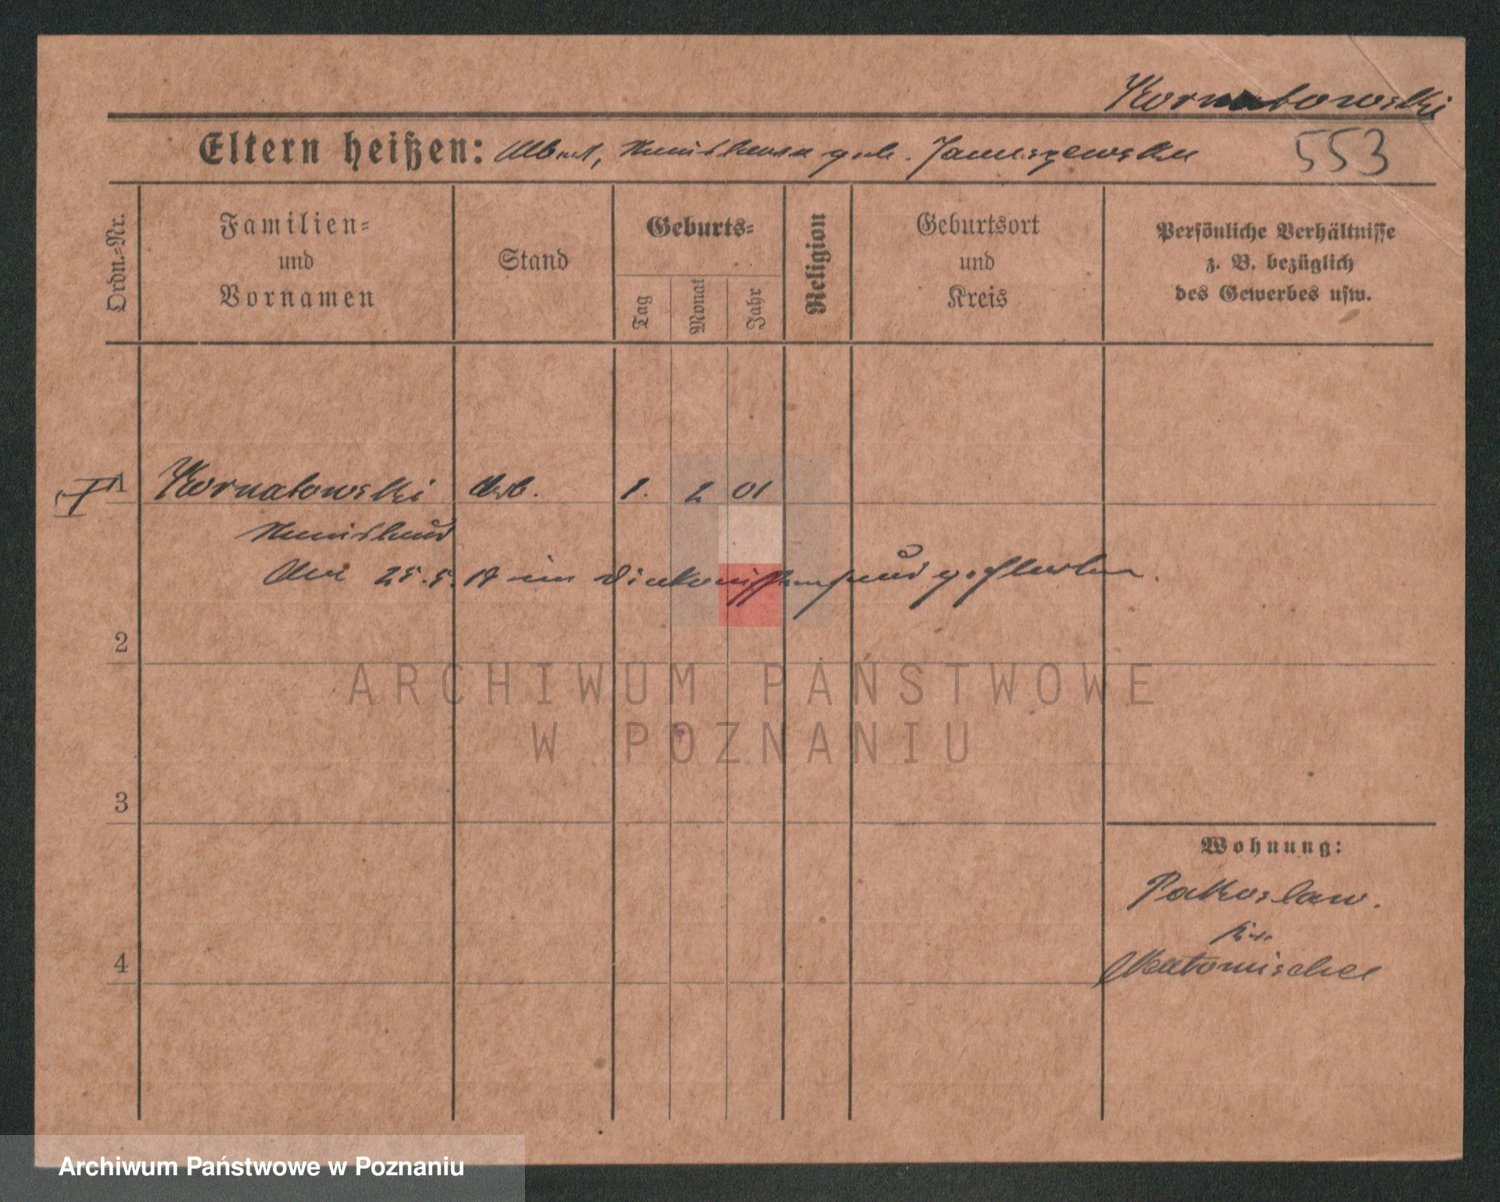 Kornatowski
553
Eltern heißen: Albert, Stanislawa geb. Januszewska
Ordn.-Nr.
Familien-
und
Vornamen
Stand
Geburts-
Tag
Monat
Jahr
Religion
Geburtsort
und
Kreis
Persönliche Verhältnisse
z. B. bezüglich
des Gewerbes usw.
1 Kornatowski 1. 2 01
Stanislaus
25.5.17 im Diakonissenhaus gestorben.
2
3
4
Wohnung:
Pakoslaw.
Neutomischel
ARCHIWUM PAŃSTWOWE
W POZNANIU
Archiwum Państwowe w Poznaniu